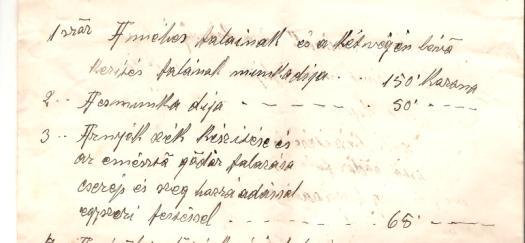 1 ször A méhes falainak és a két végén lévő
kerités falának munkadija . . 150' Korona
2 . . Acsmunka dija - - - - - - 50' - - - -
3 . . Árnyék szék készitése és
az emésztő gödör falazása
cserép és szeg hozzáadással
egyszeri festéssel - - - - - - - 68' - - - -